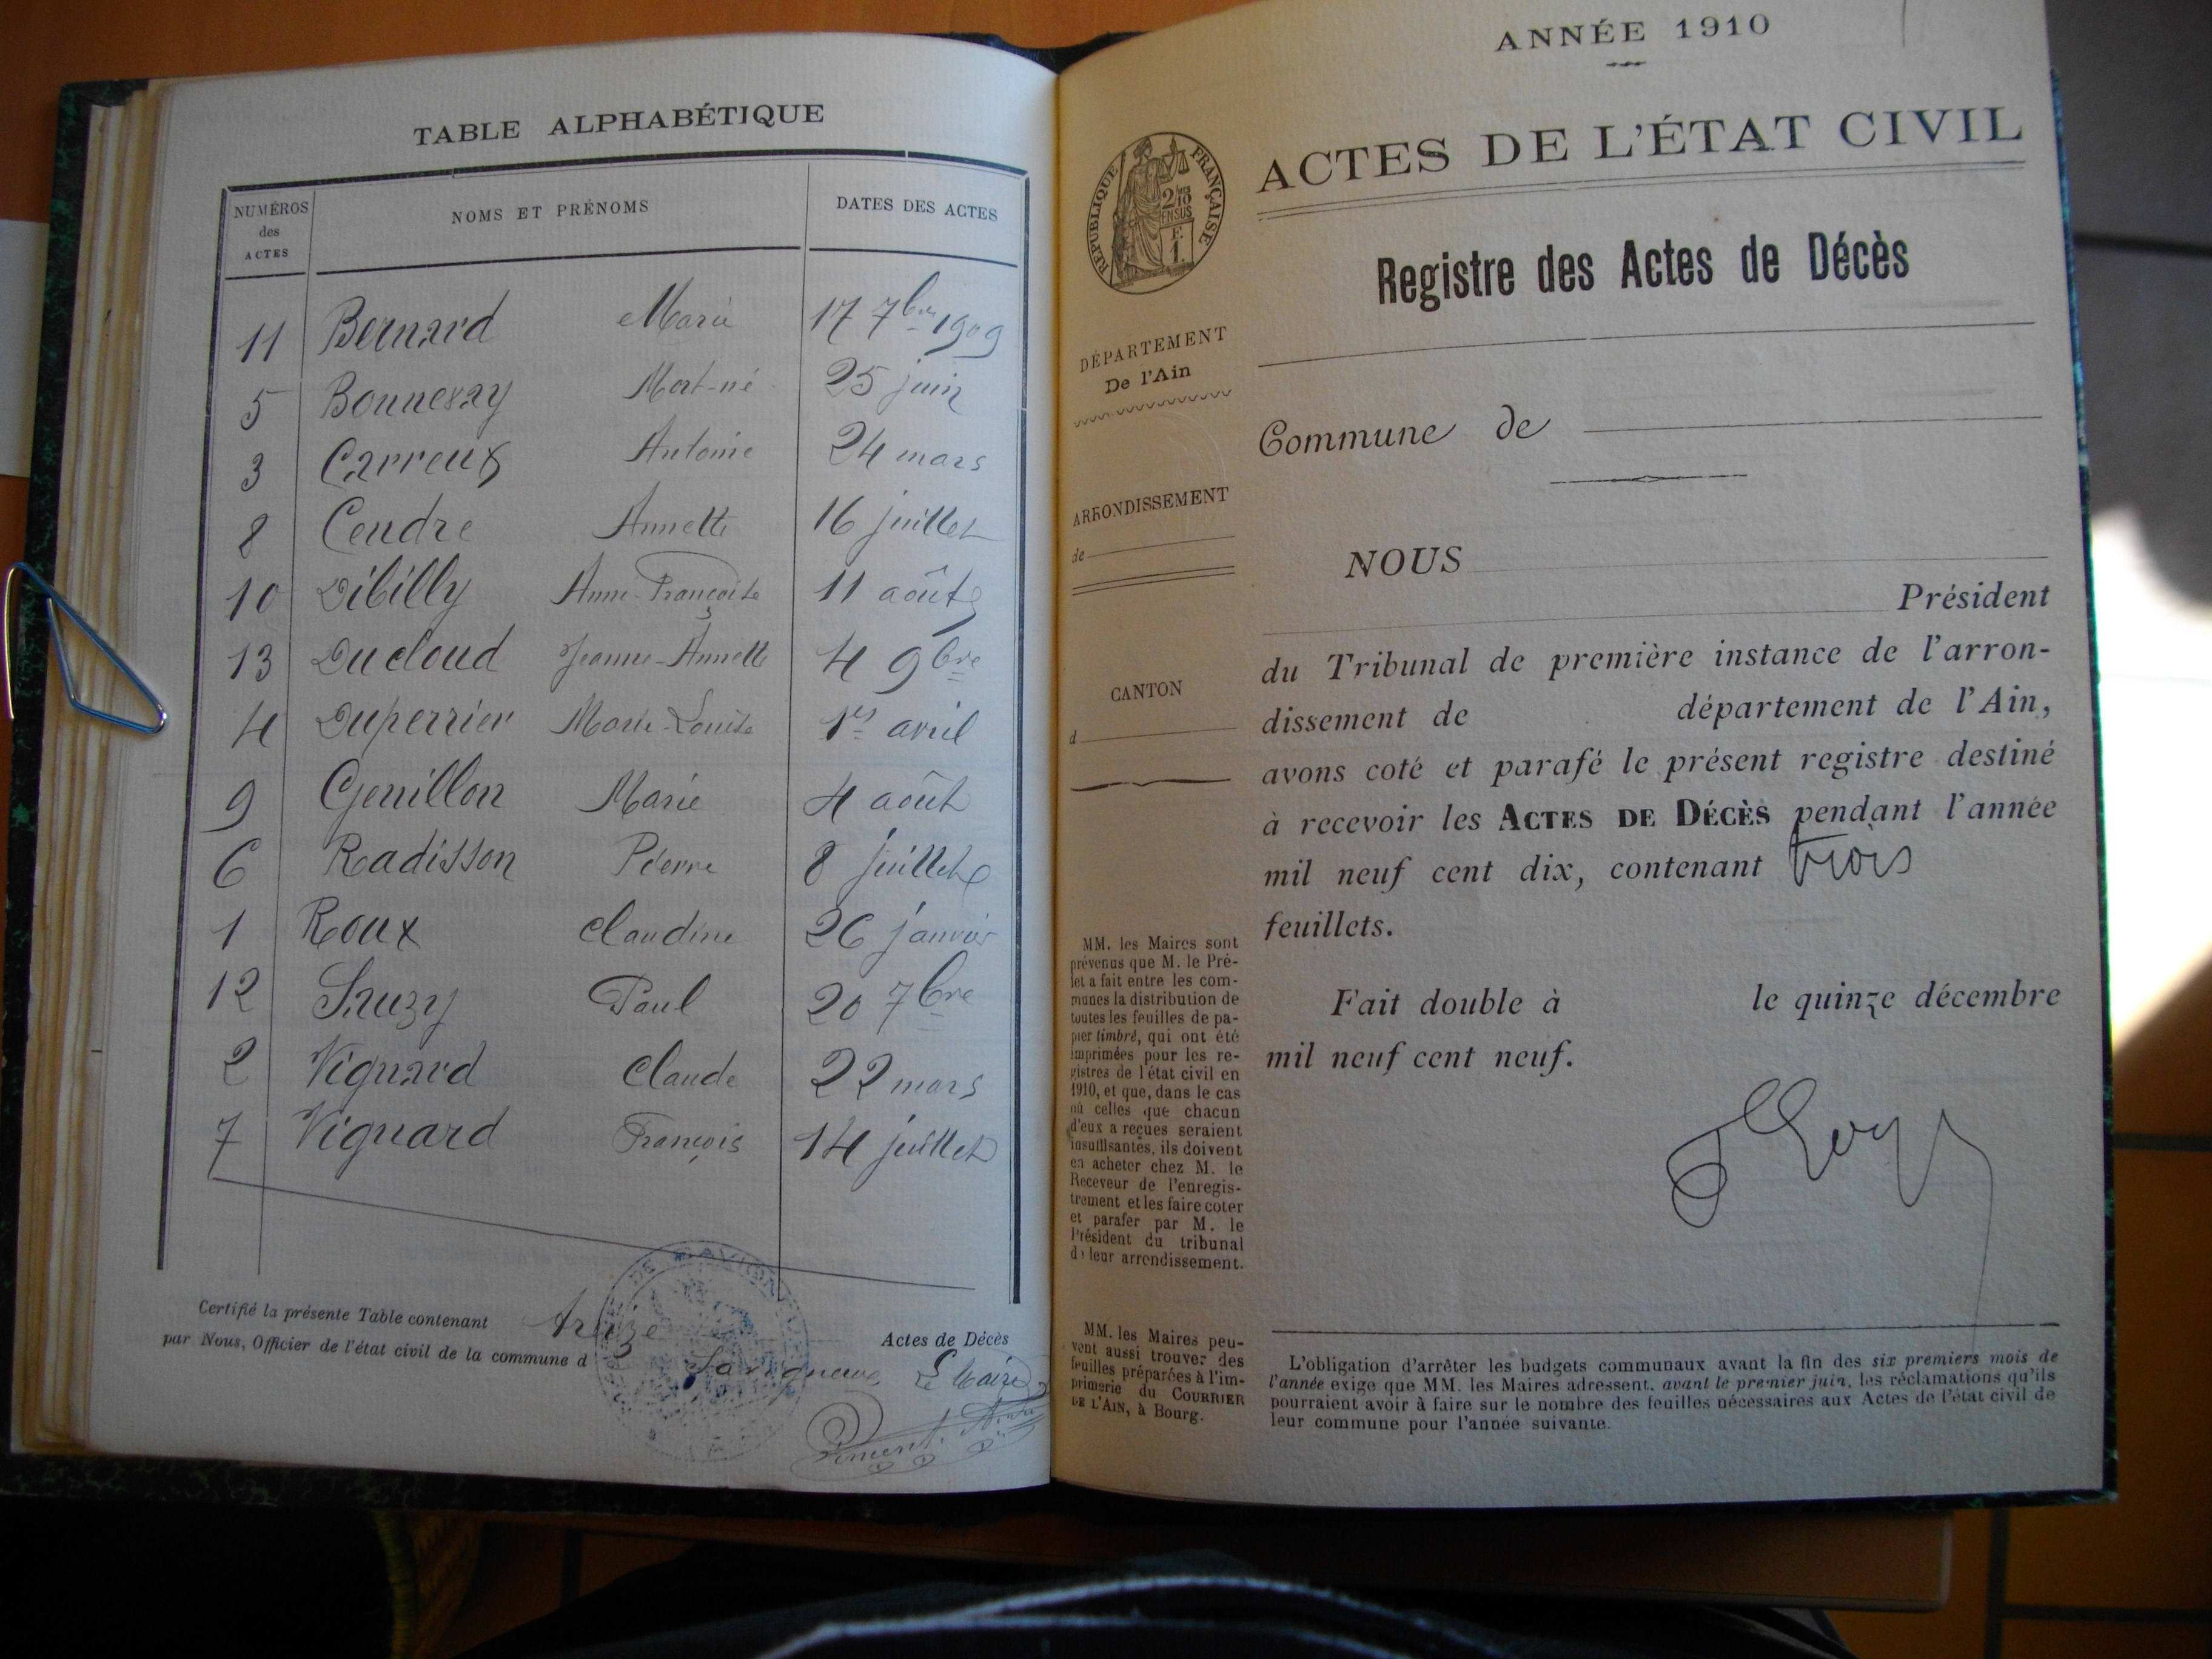 TABLE ALPHABÉTIQUE
NUMÉROS des ACTES NOMS ET PRÉNOMS DATES DES ACTES
11 Bernard Marie 17 7bre 1909
5 Mort-né 25 juin
3 Carreux Antoine 24 mars
8 Cendre Annette 16 juillet
10 Dibilly Anne-Françoise 11 août
13 Ducloud Jeanne-Annette 4 9bre
4 Duperrier Marie-Louise 1er avril
9 Genillon Marie 4 août
6 Radisson Pierre 8 juillet
1 Roux Claudine 26 janvier
12 Suzy Paul 20 7bre
2 Vignard Claude 22 mars
7 Vignard François 14 juillet
Certifié la présente Table contenant treize Actes de Décès
par Nous, Officier de l'état civil de la commune d Savigneux, Le Maire
ANNÉE 1910
ACTES DE L'ÉTAT CIVIL
RÉPUBLIQUE FRANÇAISE
Registre des Actes de Décès
DÉPARTEMENT
De l'Ain
Commune de
ARRONDISSEMENT
de
CANTON
d
NOUS
Président
du Tribunal de première instance de l'arron-
dissement de département de l'Ain,
avons coté et parafé le présent registre destiné
à recevoir les ACTES DE DÉCÈS pendant l'année
mil neuf cent dix, contenant trois
feuillets.
Fait double à le quinze décembre
mil neuf cent neuf.
MM. les Maires sont
prévenus que M. le Pré-
fet a fait entre les com-
munes la distribution de
toutes les feuilles de pa-
pier timbré, qui ont été
imprimées pour les re-
gistres de l'état civil en
1910, et que, dans le cas
où celles que chacun
d'eux a reçues seraient
insuffisantes, ils doivent
en acheter chez M. le
Receveur de l'enregis-
trement et les faire coter
et parafer par M. le
Président du tribunal
de leur arrondissement.
MM. les Maires peu-
vent aussi trouver des
feuilles préparées à l'im-
primerie du COURRIER
DE L'AIN, à Bourg.
L'obligation d'arrêter les budgets communaux avant la fin des six premiers mois de
l'année exige que MM. les Maires adressent, avant le premier juin, les réclamations qu'ils
pourraient avoir à faire sur le nombre des feuilles nécessaires aux Actes de l'état civil de
leur commune pour l'année suivante.